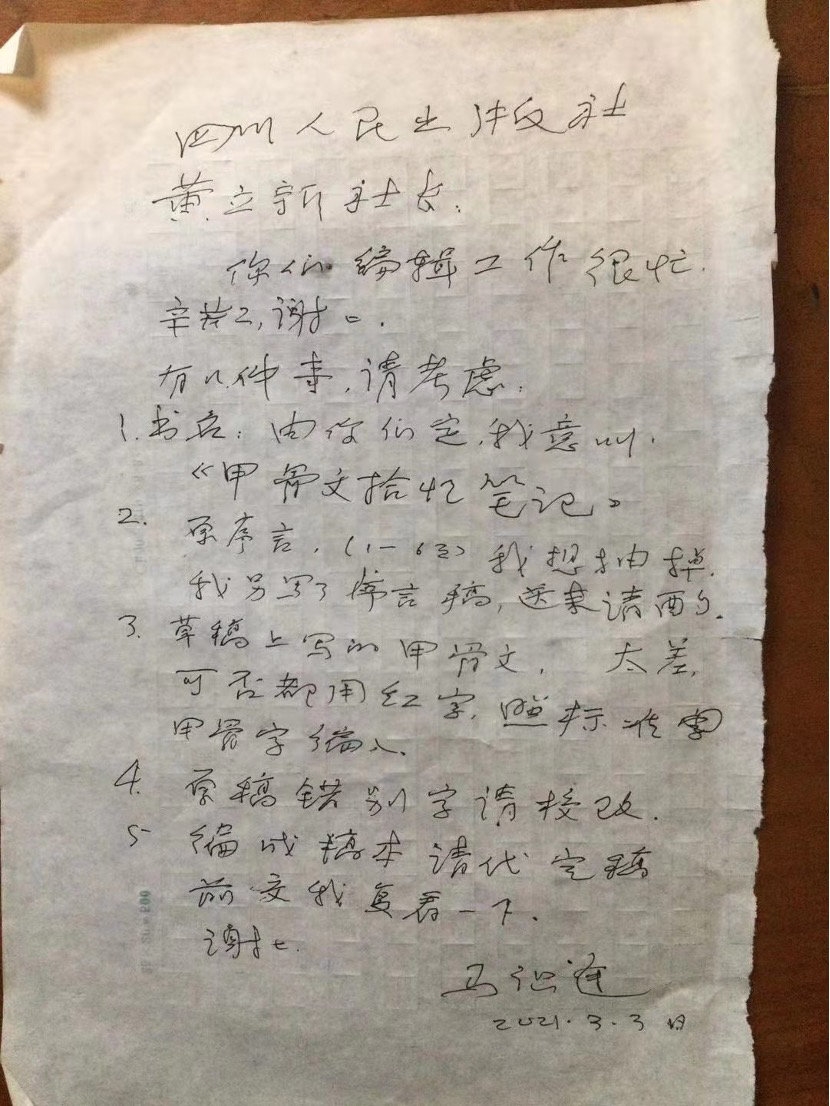 四川人民出版社
黄立新社长：
你们编辑工作很忙.
辛苦了,谢谢.
有几件事,请考虑：
1.书名：由你们定,我意叫.
《甲骨文拾忆笔记》
2.原序言,(1—63)我想抽掉.
我另写了序言稿,送来请酌.
3.草稿上写的甲骨文, 太差,
可否都用红字,照标准
甲骨字编入.
4.原稿错别字请校改.
5 编成稿本请代定稿
前交我复看一下.
谢谢.
马识途
2021.3.3日